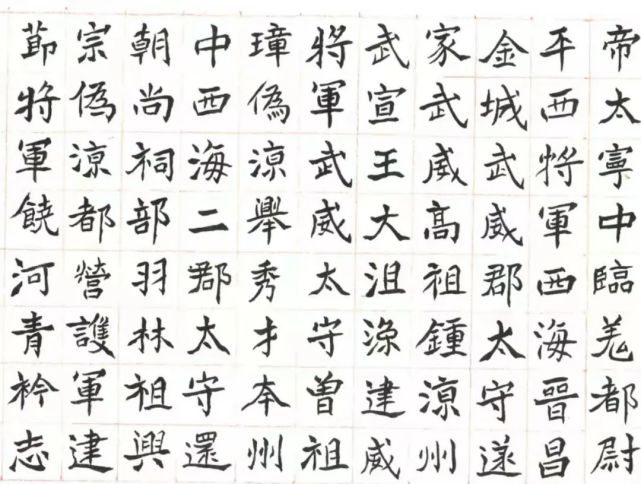 帝太寧中臨羌都尉
平西將軍西海晉昌
金城武威郡太守遂
家武威高祖鍾涼州
武宣王大沮渠建威
將軍武威太守曽祖
璋偽涼舉秀才本州
中西海二郡太守還
朝尚祠部羽林祖興
宗偽涼都營護軍建
節將軍饒河青衿志